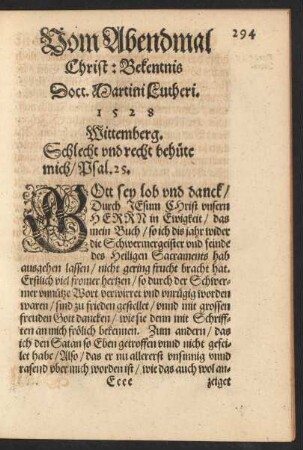 294
Vom Abendmal
Christ: Bekentnis
Doct. Martini Lutheri.
1528
Wittemberg.
Schlecht vnd recht behüte
mich / Psal. 25.
GOtt sey lob vnd danck /
Durch JEsum CHrist vnsern
HERRN in Ewigkeit / das
mein Buch / so ich dis jahr wider
die Schwermergeister vnd feinde
des Heiligen Sacraments hab
ausgehen lassen / nicht gering frucht bracht hat.
Erstlich viel fromer hertzen / so durch der Schwer-
mer vnnütze Wort verwirret vnd vnrügig worden
waren / sind zu frieden gestellet / vnnd mit grossen
freuden Gott dancken / wie sie denn mit Schriff-
ten an mich frölich bekennen. Zum andern / das
ich den Satan so Eben getroffen vnnd nicht gefei-
let habe / Also / das er nu allererst vnsinnig vnnd
rasend vber mich worden ist / wie das auch wol an-
Eeee
zeiget